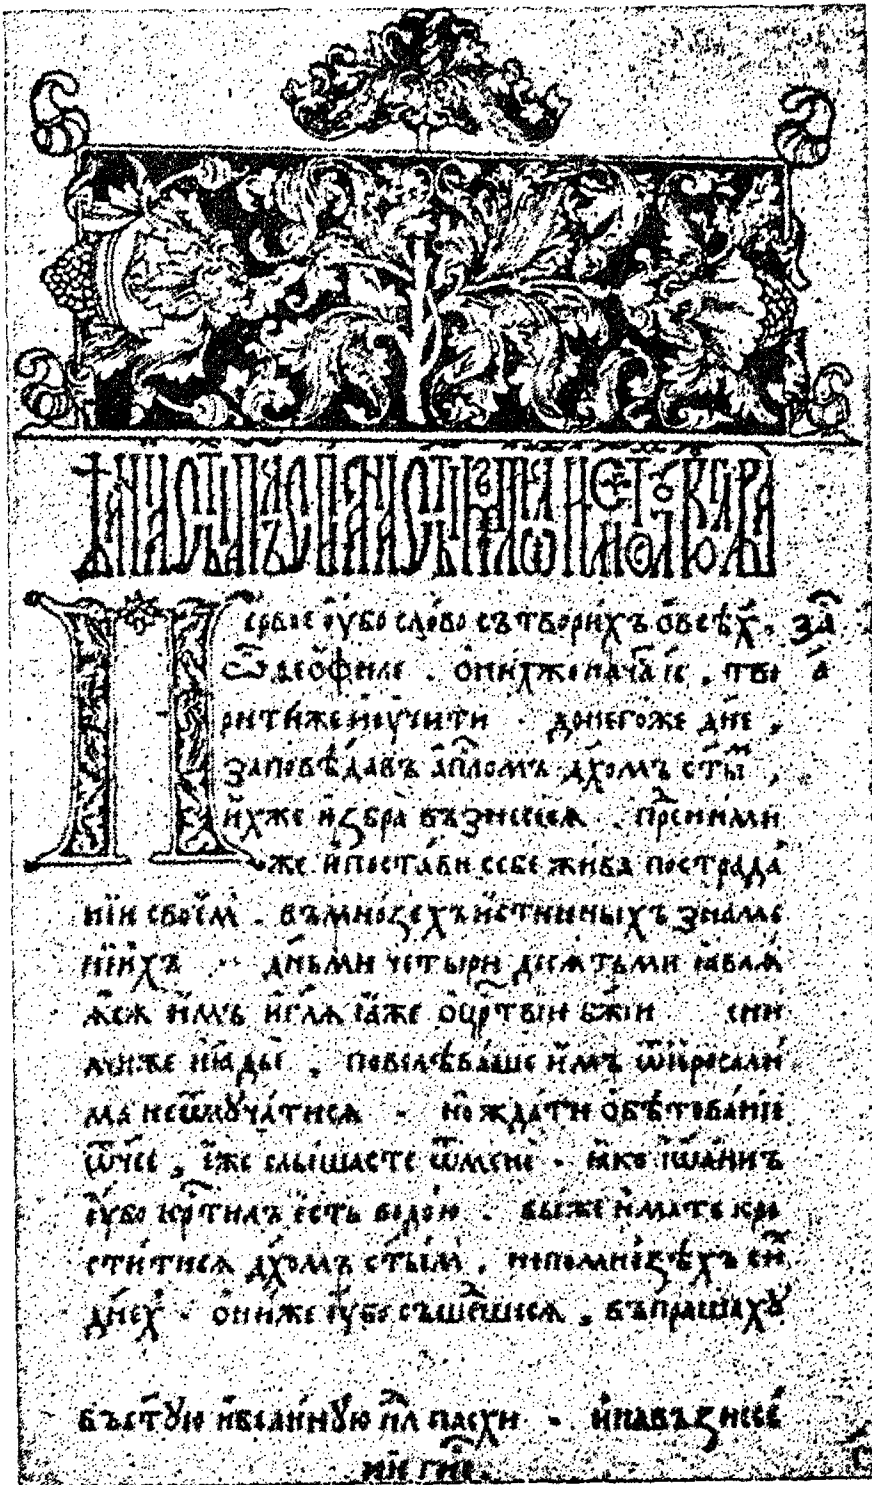 первое оу҆бо сло́во сътвори́хъ ѻ҆ всѣ́х . за҃
ѽ ѳео́филе . ѻ҆ ни́хже нача́ і҃с , тво
ри́тиже и҆ оу҆чи́ти · до негѡ́же дн҃е ,
запові́дав а҆пⷭ҇ломъ дх҃омъ ст҃ы́м ,
и҆́хже и҆збра̀ възнесе́сѧ . пре́д ни́ми
же и҆ поста́ви себе жи́ва по страда́
нїи свое́м . въ мно́зехъ и҆́стинныхъ зна́ме
нїихъ · дн҃ьми четы́ри десѧ́тьми ꙗ҆влѧ́ѧ
сѧ и҆̀мъ и҆ гл҃ѧ ꙗ҆́же ѻ҆ црⷭ҇твїи бж҃їи сни́
ми́же и҆ ꙗ҆ды́й , повелѣва́ше и҆̀мъ ѿ і҆еросали́
ма не ѿлуча́тисѧ · но жда́ти ѻ҆бѣтова́нїе
ѿч҃ее , є҆́же слы́шасте ѿ менѐ · ꙗ҆́ко і҆ѡа́ннъ
оу҆́бо крⷭ҇ти́лъ є҆́сть водо́ю . вы́же и҆́мате кре
сти́тисѧ дх҃омъ ст҃ы́м , не по мно́зѣхъ си́х
дне́х · ѻ҆ни́же оу҆́бо съше́дшесѧ , въпраша́хꙋ
въ ст҃ꙋ́ю и҆ вели́кꙋю нⷣлю па́схи · и҆ на възнесе́
нїе гн҃е .